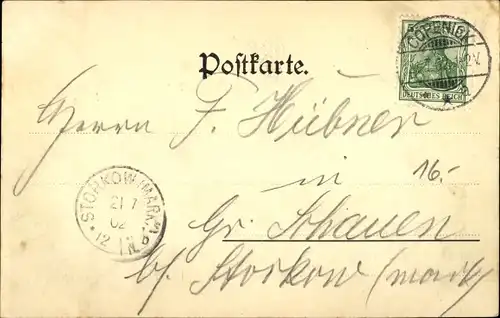 CÖPENICK
5
DEUTSCHES REICH
Postkarte.
Herrn F. Hübner
in
16.-
Gr. Schauen
b/ Storkow (Mark)
* STORKOW (MARK) *
21 7
02
12 1 N.